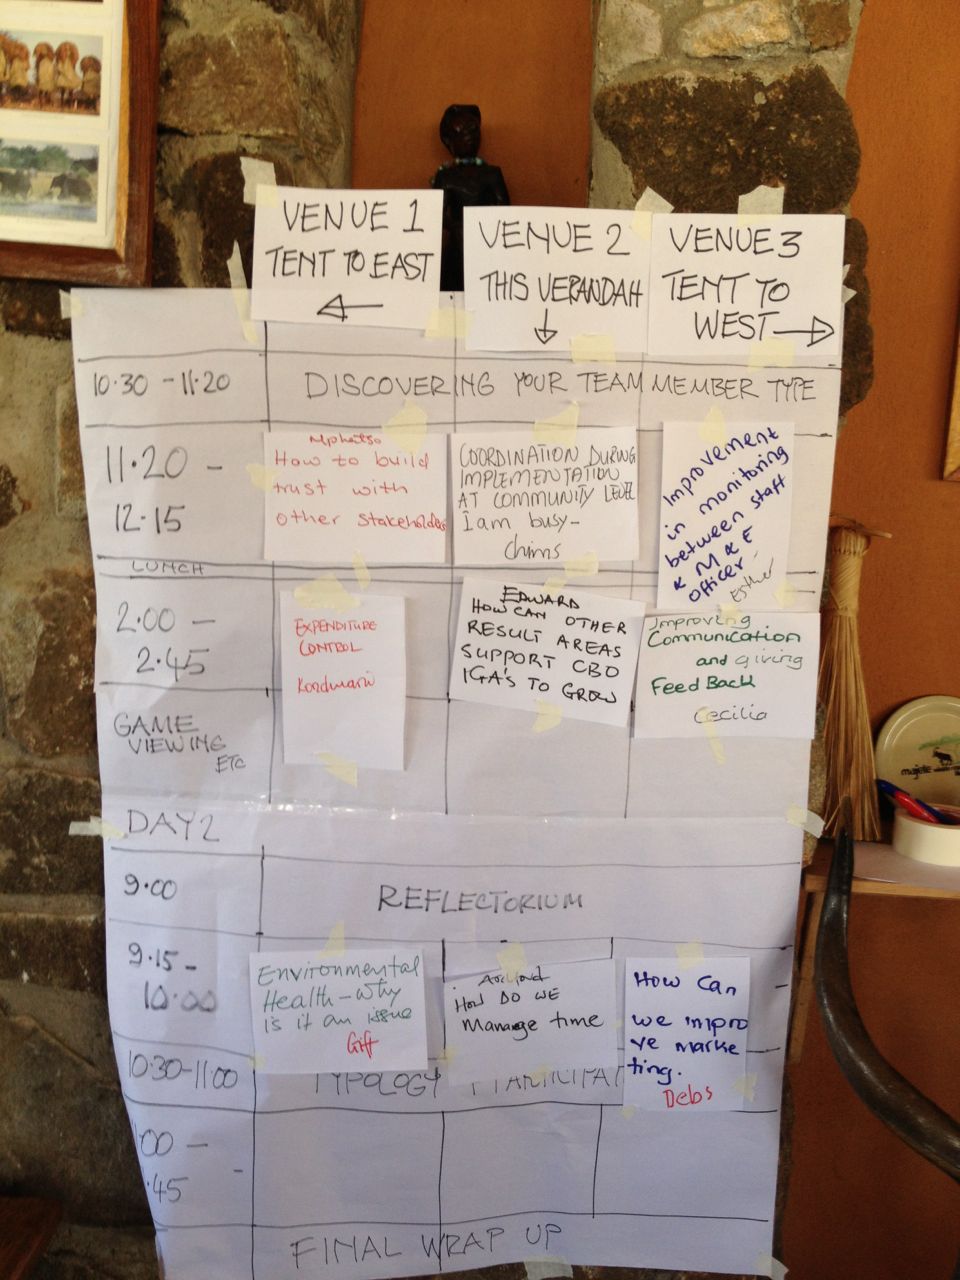 VENUE 1
TENT TO EAST
VENUE 2
THIS VERANDAH
VENUE 3
TENT TO
WEST
10.30 - 11.20
DISCOVERING YOUR TEAM MEMBER TYPE
11.20 -
12.15
Mphatso
How to build
trust with
other stakeholders
COORDINATION DURING
IMPLEMENTATION
AT COMMUNITY LEVEL
I am busy-
Chims
Improvement
in monitoring
between staff
& M & E
officer
Esther
LUNCH
2.00 -
2.45
EXPENDITURE
CONTROL
EDWARD
HOW CAN OTHER
RESULT AREAS
SUPPORT CBO
IGA'S TO GROW
Improving
Communication
and giving
FeedBack
Cecilia
GAME
VIEWING
ETC
DAY 2
9.00
REFLECTORIUM
9.15 -
10.00
Environmental
Health - why
is it an issue
Gift
How DO WE
Manage time
How Can
we impro
ve marke
ting.
Debs
10:30-11:00
TYPOLOGY PARTICIPAT
00 -
.45
FINAL WRAP UP
majete